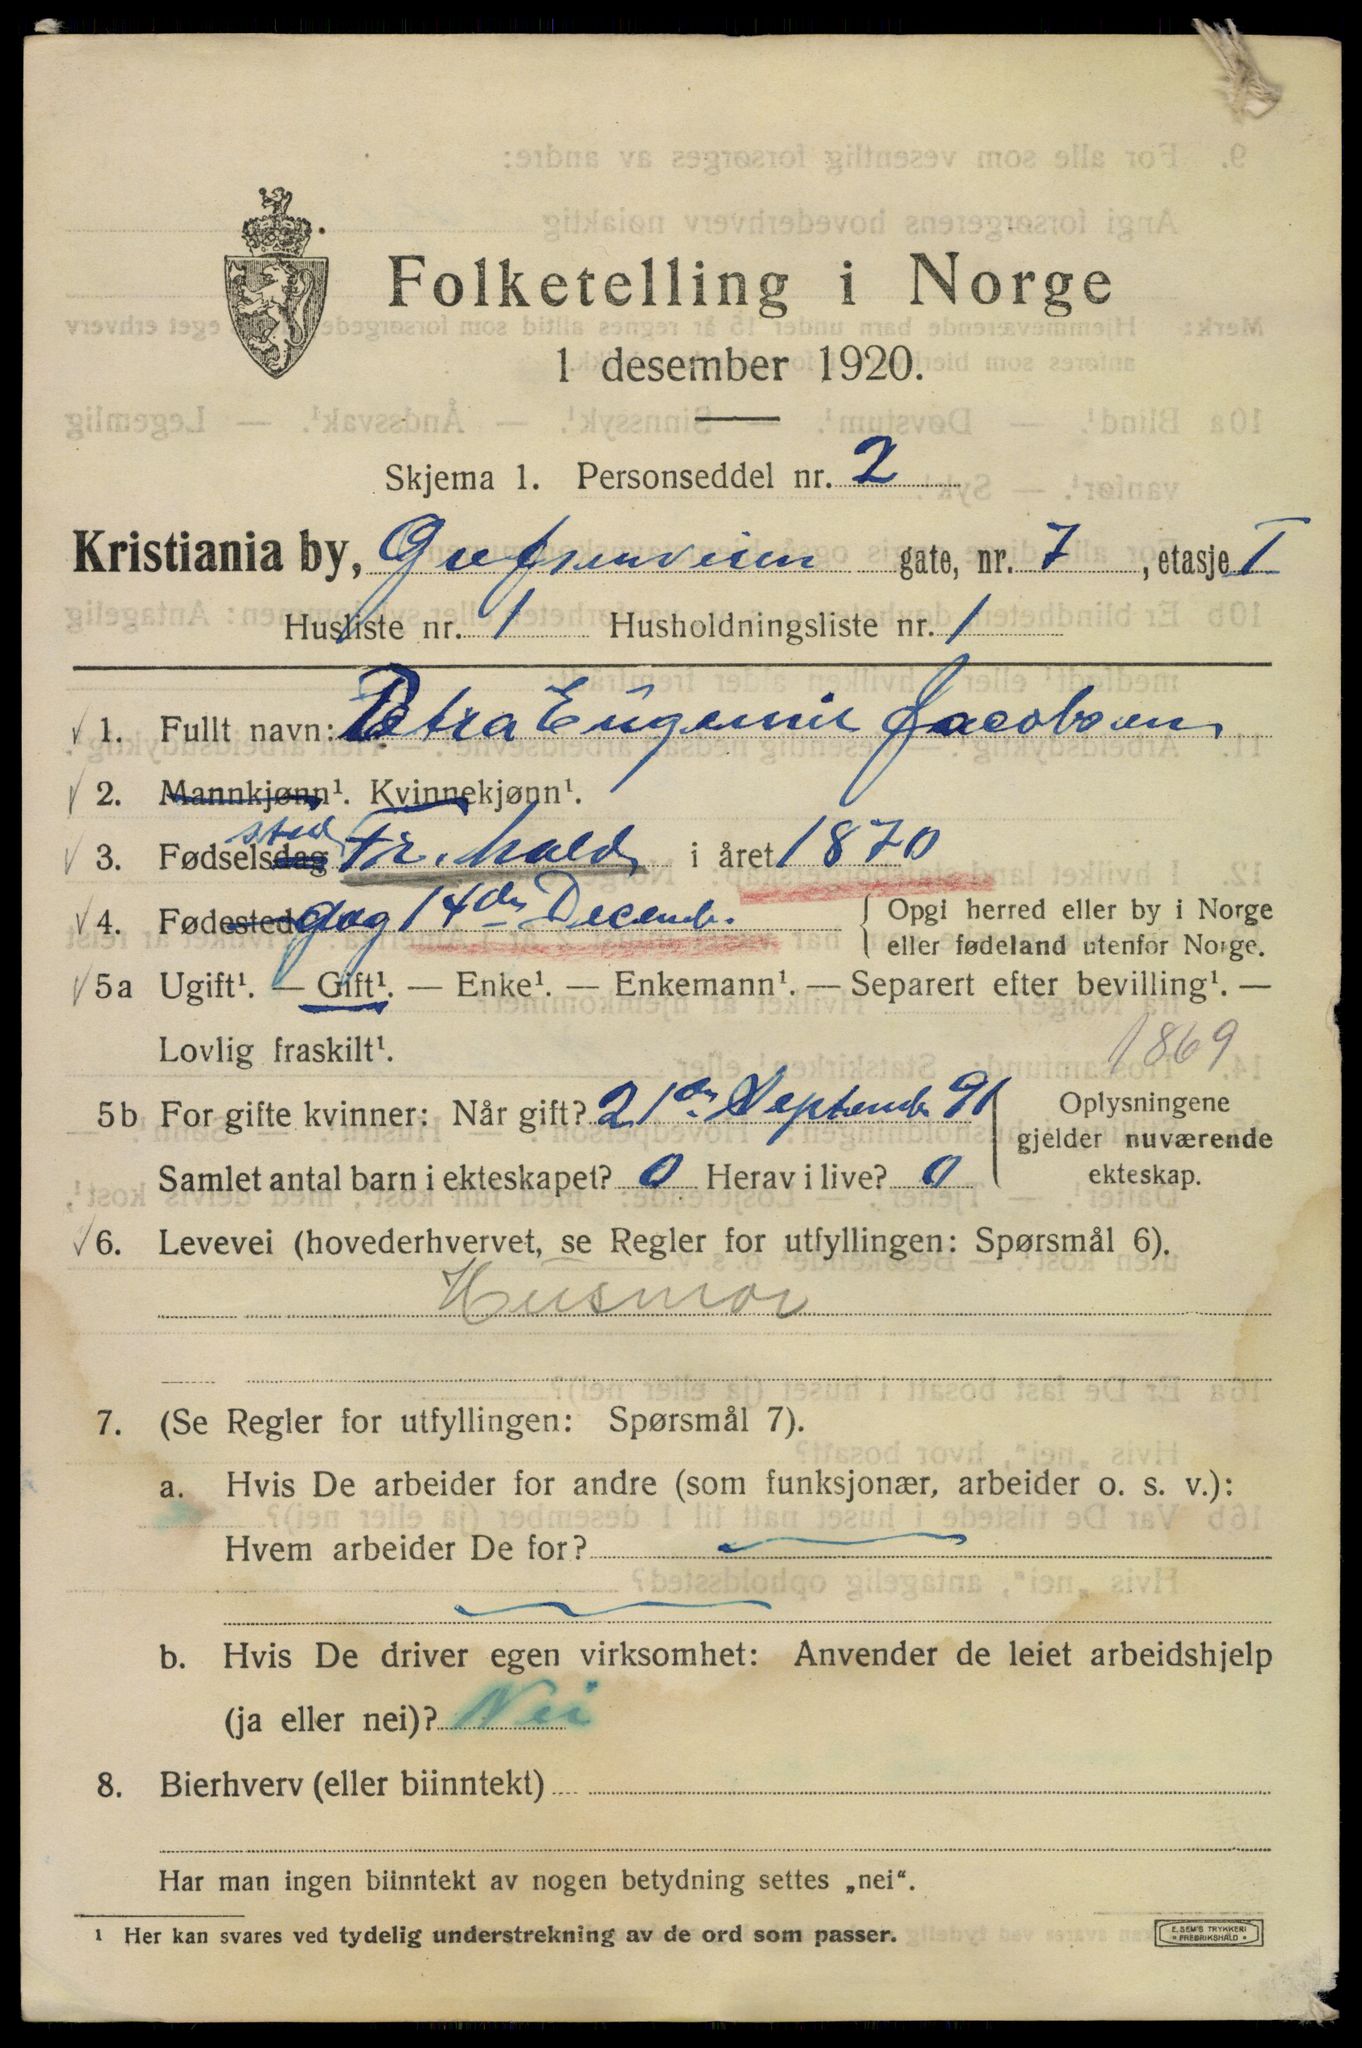 Folketelling i Norge
1 desember 1920.
Skjema 1. Personseddel nr. 2
Kristiania by, Grefsenveien gate, nr. 7, etasje I
Husliste nr. 1 Husholdningsliste nr. 1
1. Fullt navn: Petra Eugenie Jacobsen
2. Mannkjønn¹. Kvinnekjønn¹.
sted
3. Fødselsdag Fr.hald i året 1870
4. Fødested dag 14de Decemb. { Opgi herred eller by i Norge
eller fødeland utenfor Norge.
5a Ugift¹. — Gift¹. — Enke¹. — Enkemann¹. — Separert efter bevilling¹. —
Lovlig fraskilt¹. 1869
5b For gifte kvinner: Når gift? 21de Septemb 91
Samlet antal barn i ekteskapet? 0 Herav i live? 0
Oplysningene
gjelder nuværende
ekteskap.
6. Levevei (hovederhvervet, se Regler for utfyllingen: Spørsmål 6).
Husmor
7. (Se Regler for utfyllingen: Spørsmål 7).
a. Hvis De arbeider for andre (som funksjonær, arbeider o. s. v.):
Hvem arbeider De for?
b. Hvis De driver egen virksomhet: Anvender de leiet arbeidshjelp
(ja eller nei)? Nei
8. Bierhverv (eller biinntekt)
Har man ingen biinntekt av nogen betydning settes „nei“.
¹ Her kan svares ved tydelig understrekning av de ord som passer.
E. SEM'S TRYKKERI
FREDRIKSHALD